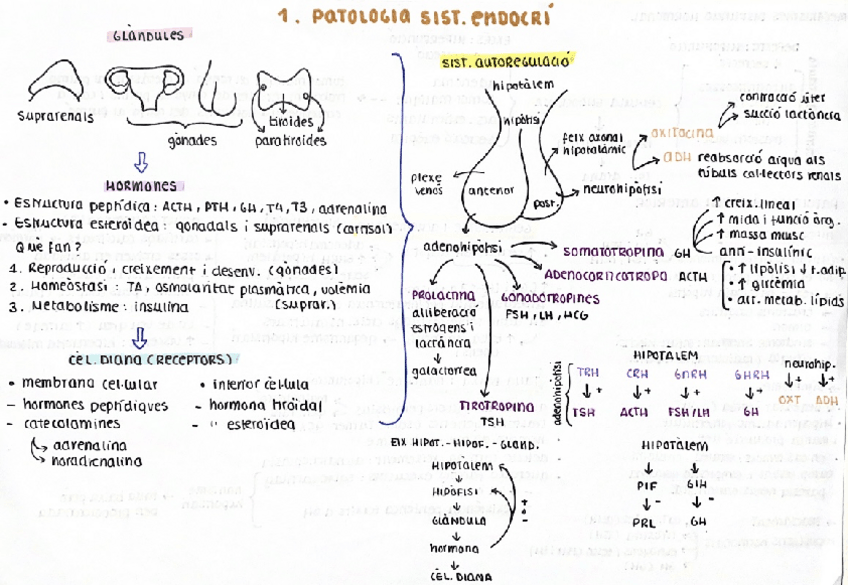 1. PATOLOGIA SIST. ENDOCRÍ
GLÀNDULES
suprarenals
gònades
tiroides
paratiroides
HORMONES
• Estructura peptídica: ACTH, PTH, GH, T4, T3, adrenalina
- Estructura esteroidea: gonadals i suprarenals (cortisol)
Què fan?
1. Reproducció, creixement i desenv. (gònades)
2. Homeòstasi: TA, osmolaritat plasmàtica, volèmia
(suprar.)
3. Metabolisme: insulina
CÈL. DIANA (RECEPTORS)
• membrana cel·lular
- hormones peptídiques
- catecolamines
adrenalina
noradrenalina
• interior cèl·lula
- hormona tiroidal
- " esteroidea
SIST. AUTOREGULACIÓ
hipotàlem
hipòfisi
feix axonal
hipotalàmic
plexe
venós
anterior
post.
neurohipòfisi
OXITOCINA
contracció úter
succió lactància
ADH
reabsorció aigua als
túbuls col·lectors renals
adenohipòfisi
SOMATOTROPINA GH
↑ creix. lineal
↑ mida i funció òrg.
↑ massa musc
anti-insulínic
• ↑ lipòlisi ↓ t. adip.
• ↑ glicèmia
• alt. metab. lípids
ADENOCORTICOTROPA ACTH
PROLACTINA
alliberació
estrògens i
lactància
galactorrea
GONADOTROPINES
FSH, LH, HCG
TIROTROPINA
TSH
HIPOTÀLEM
neurohip.
adenohipòfisi
TRH CRH GnRH GHRH
+ + + + + +
TSH ACTH FSH/LH GH OXT ADH
HIPOTÀLEM
PIF GIH
- -
PRL GH
EIX HIPOT.-HIPOF.-GLAND.
HIPOTÀLEM
HIPÒFISI
GLÀNDULA
hormona
CÈL. DIANA